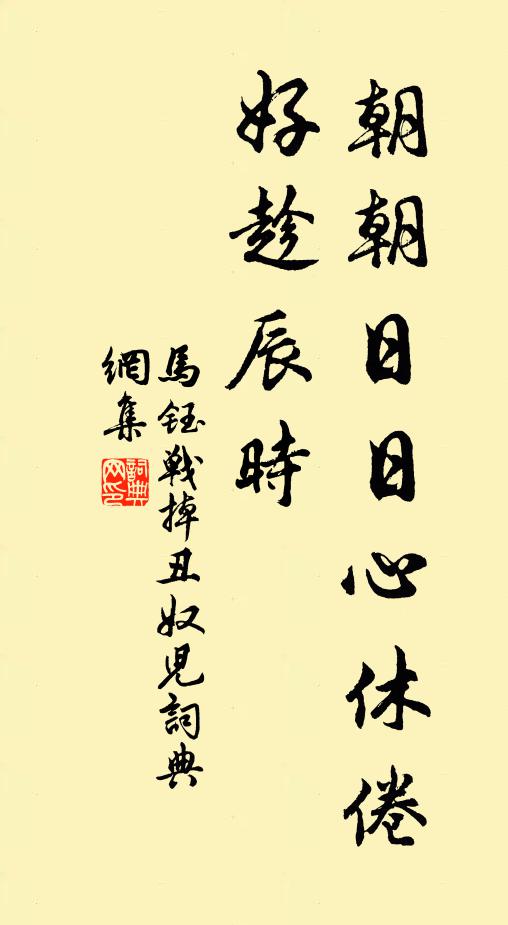 朝朝日日心休倦
好趁辰時
馬鈺戰掉丑奴兒詞典
網集
詞典网印